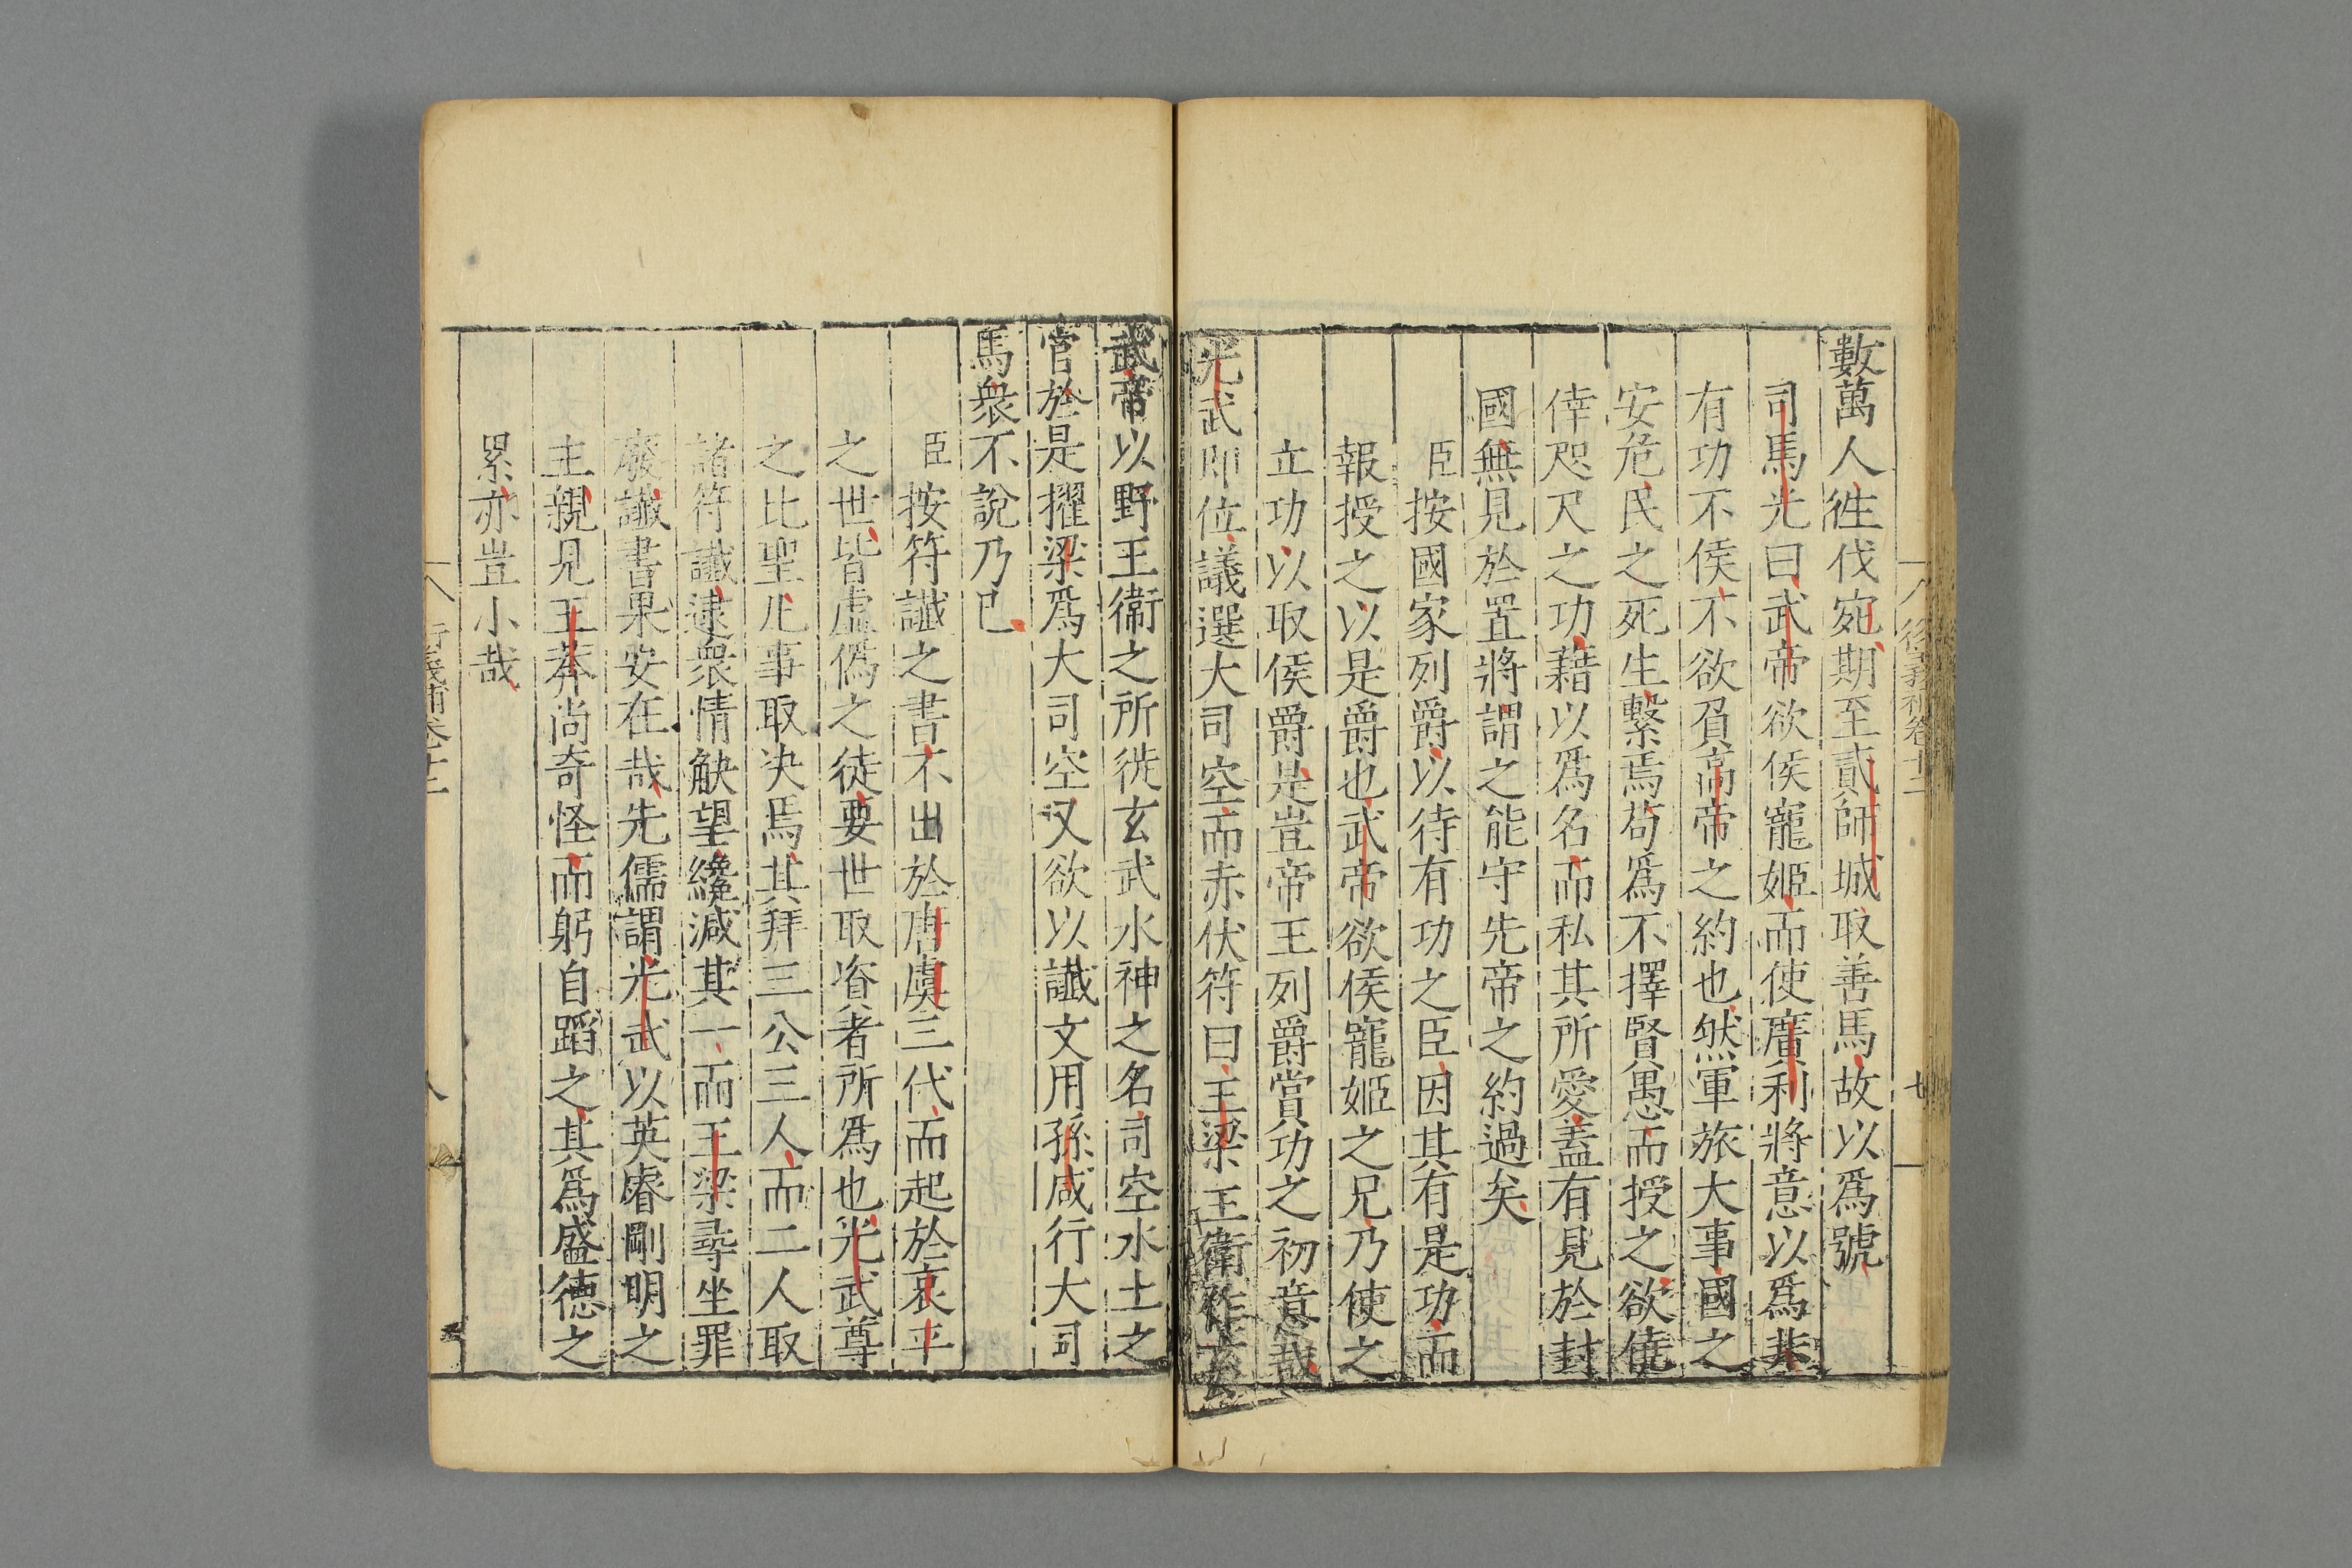 數萬人徃伐宛期至貳師城取善馬故以爲號
司馬光曰武帝欲侯寵姬而使廣利將意以爲非
有功不侯不欲負高帝之約也然軍旅大事國之
安危民之死生繫焉茍爲不擇賢愚而授之欲僥
倖咫尺之功藉以爲名而私其所愛蓋有見於封
國無見於置將謂之能守先帝之約過矣
臣按國家列爵以待有功之臣因其有是功而
報授之以是爵也武帝欲侯寵姬之兄乃使之
立功以取侯爵是豈帝王列爵賞功之初意哉
光武即位議選大司空而赤伏符曰王梁王衛作玄
武帝以野王衞之所徙玄武水神之名司空水土之
官於是擢梁爲大司空又欲以讖文用孫咸行大司
馬衆不說乃已
臣按符讖之書不出於唐虞三代而起於哀平
之世皆虛僞之徒要世取資者所爲也光武尊
之比聖凡事取決焉其拜三公三人而二人取
諸符讖逮衆情觖望纔減其一而王梁尋坐罪
廢讖書果安在哉先儒謂光武以英睿剛明之
主親見王莽尚奇怪而躬自蹈之其爲盛德之
累亦豈小哉